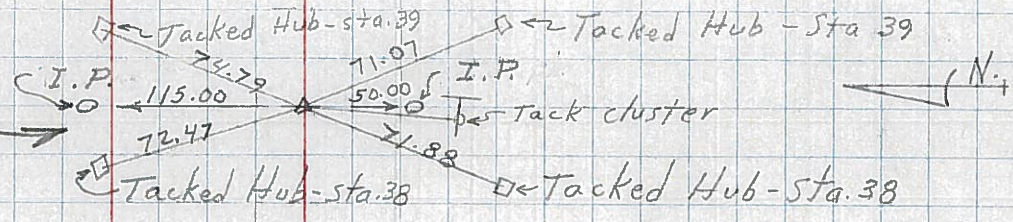 Tacked Hub-sta.39
Tacked Hub - Sta 39
74.79
71.07
I.P.
I.P.
N.
115.00
50.00
Tack cluster
72.47
71.88
Tacked Hub-Sta.38
Tacked Hub - Sta.38